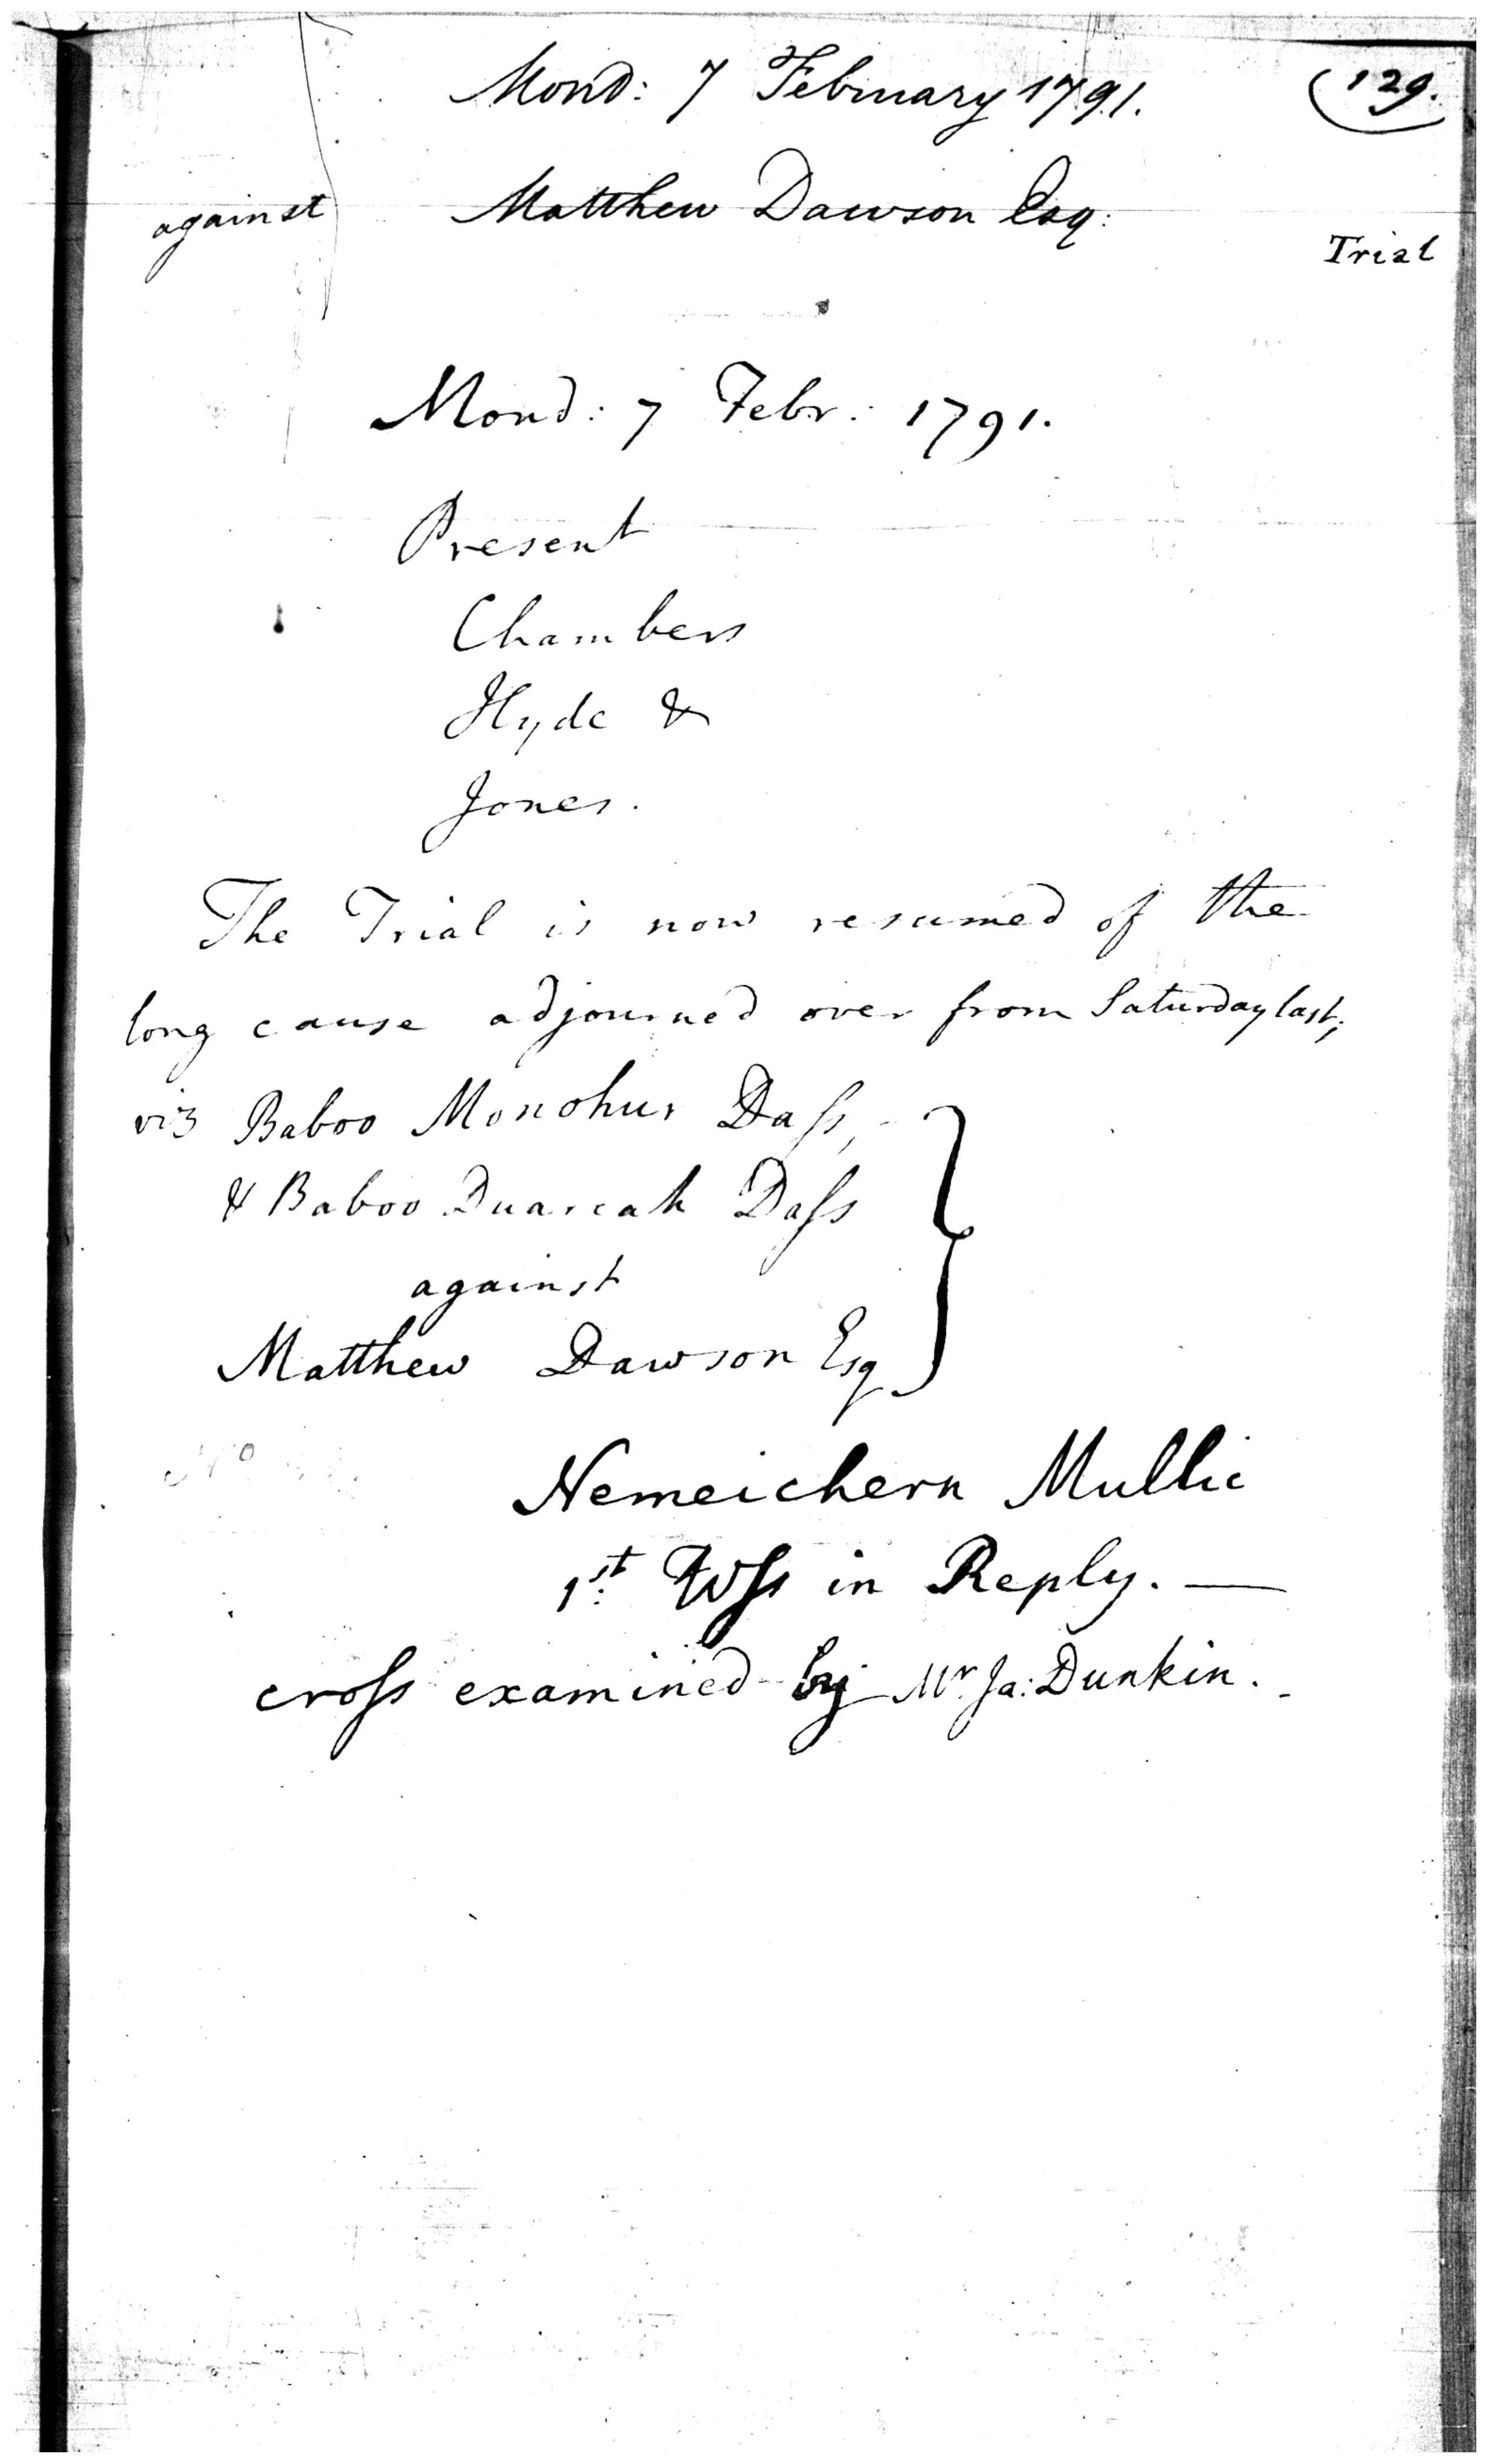 Mond: 7 February 1791.
129.
against Matthew Dawson Esq:
Trial
Mond: 7 Febr: 1791.
Present
Chambers
Hyde &
Jones.
The Trial is now resumed of the
long cause adjourned over from Saturday last,
viz Baboo Monohur Daſs,
& Baboo Duarcah Daſs
against
Matthew Dawson Esq
Nemeichern Mullic
1st Wſs in Reply. —
croſs examined by Mr Ja: Dunkin.